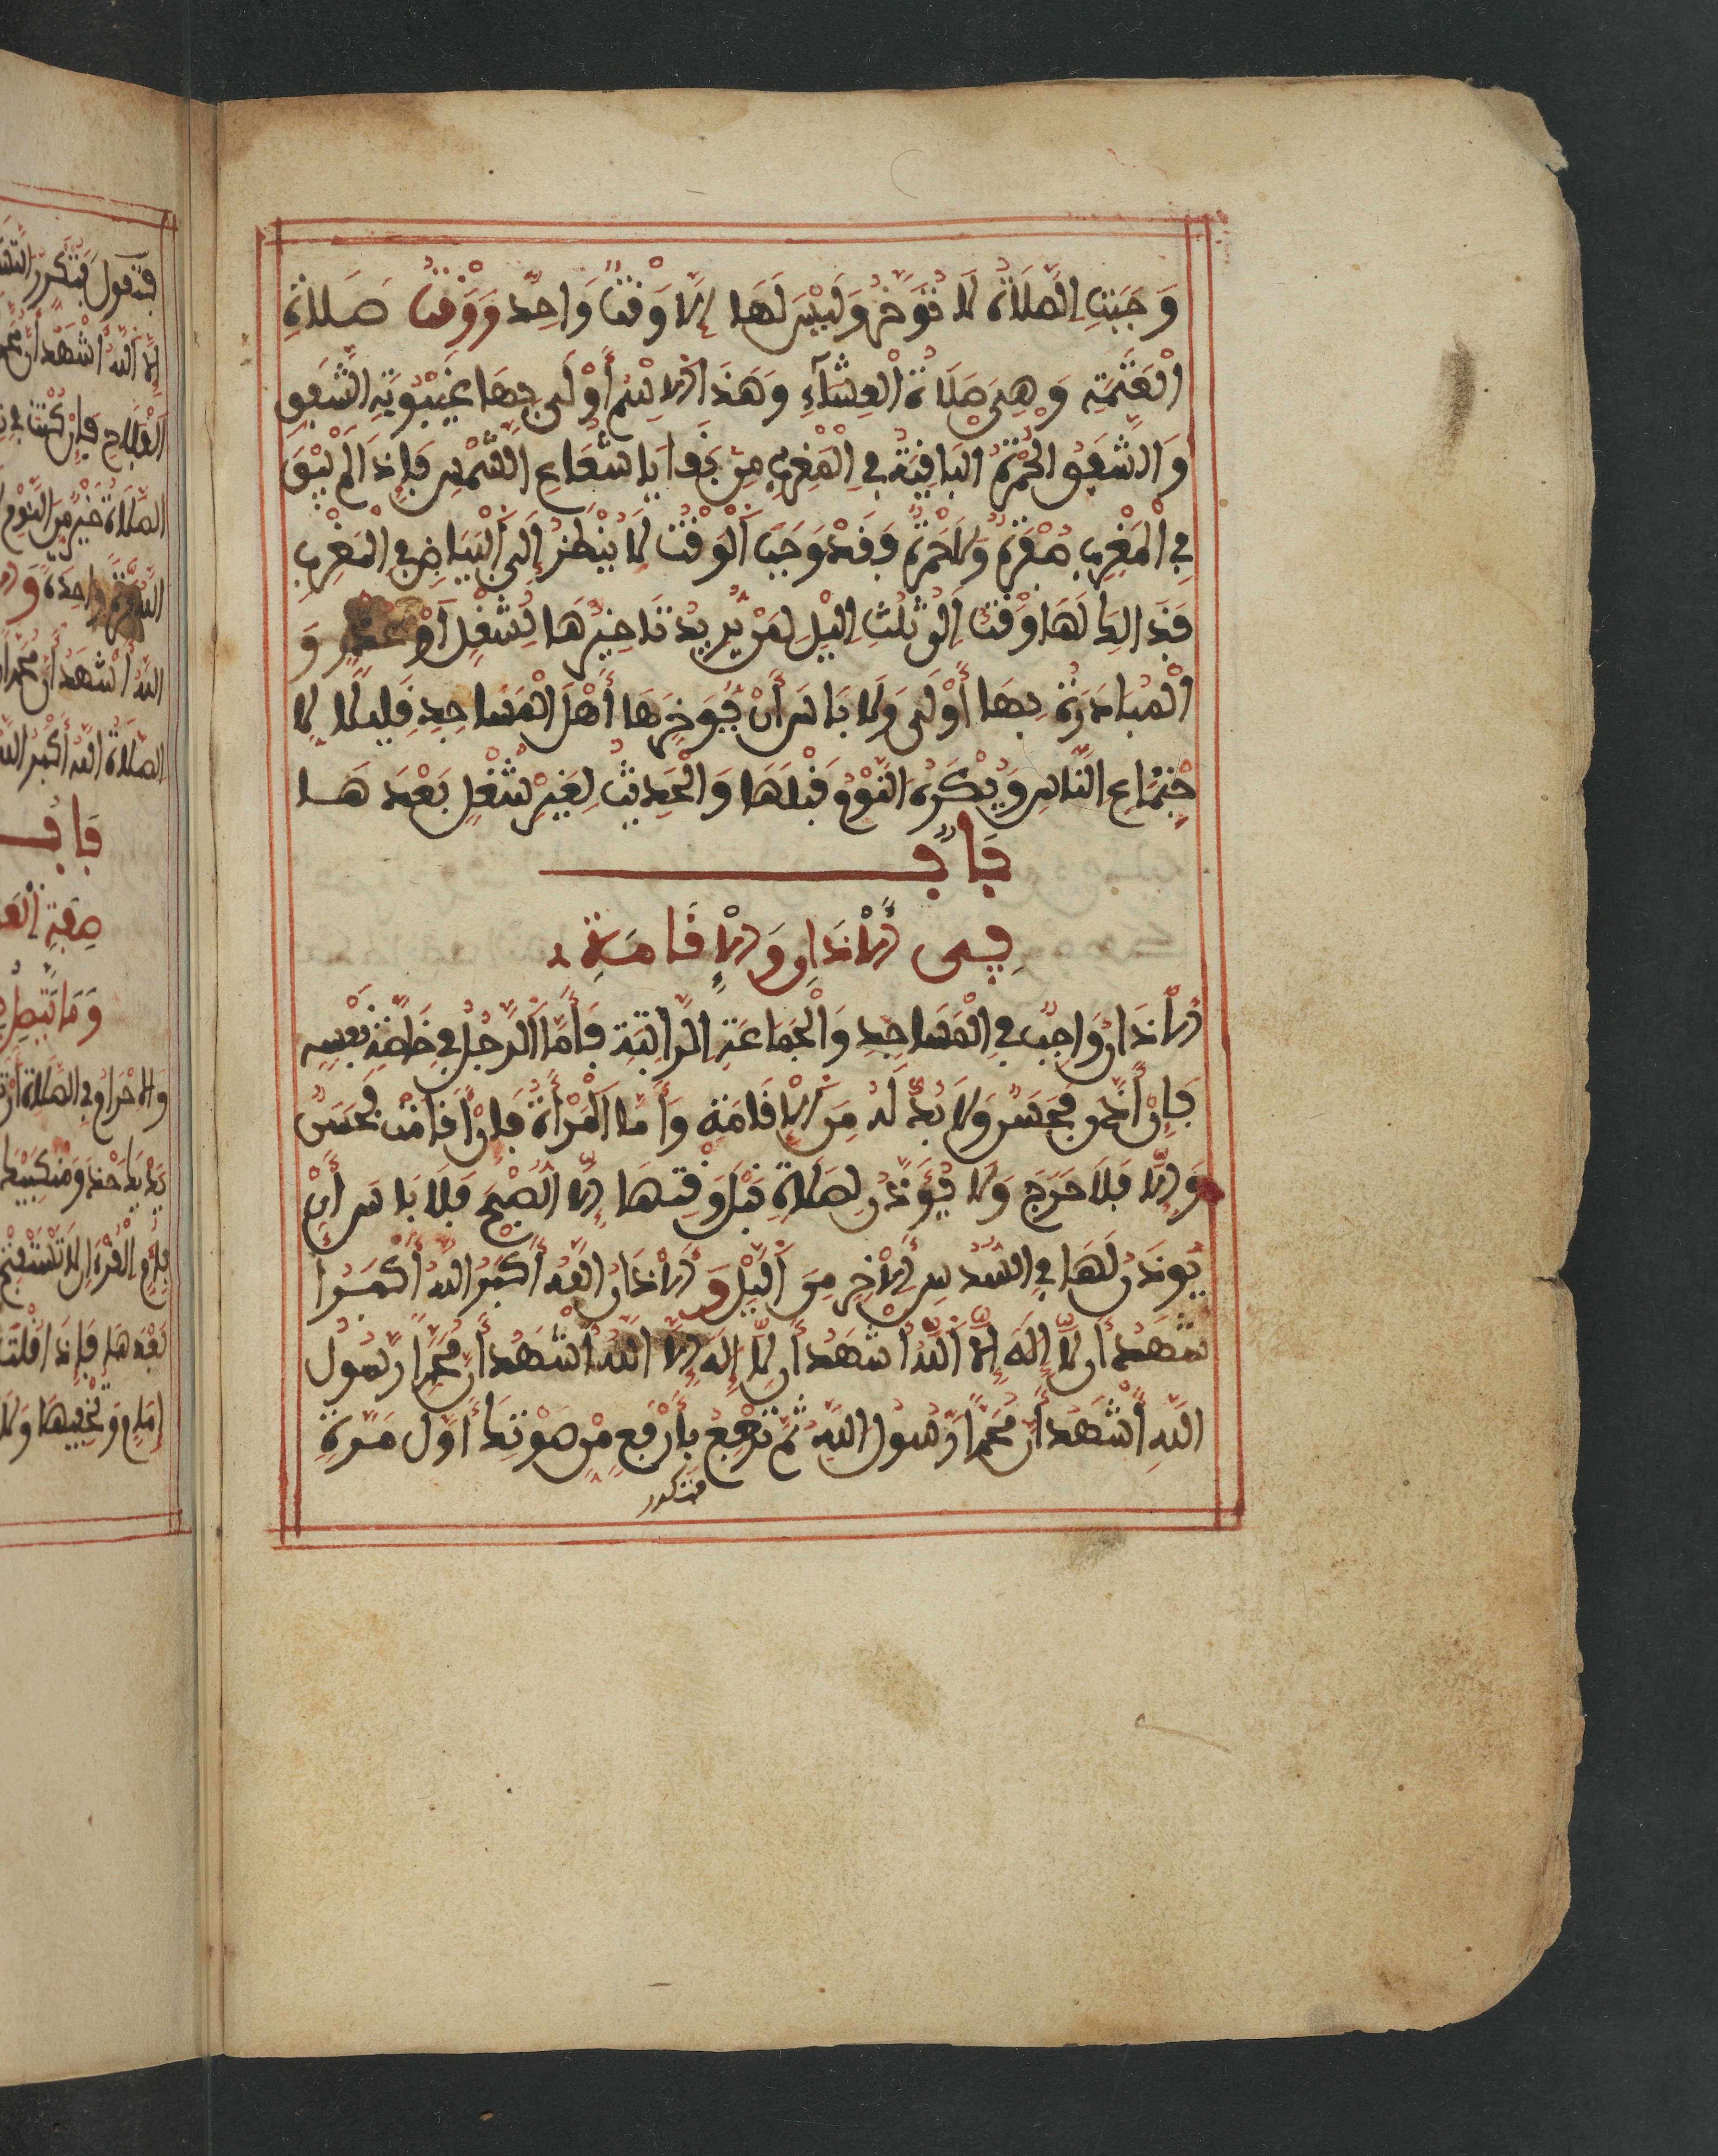 وَجَبَتِ الصَّلَاةُ لَا تُؤَخَّرُ وَلَيْسَ لَهَا إِلَّا وَقْتٌ وَاحِدٌ وَوَقْتُ صَلَاةِ
الْعَتَمَةِ وَهِيَ صَلَاةُ الْعِشَآءِ وَهَذَا الِاسْمُ أَوْلَى بِهَا غَيْبُوبَةُ الشَّفَقِ
وَالشَّفَقُ الْحُمْرَةُ الْبَاقِيَةُ فِي الْمَغْرِبِ مِنْ بَقَايَا شُعَاعِ الشَّمْسِ فَإِذَا لَمْ يَبْقَ
فِي الْمَغْرِبِ صُفْرَةٌ وَلَا حُمْرَةٌ فَقَدْ وَجَبَ الْوَقْتُ لَا يُنْظَرُ إِلَى الْبَيَاضِ فِي الْمَغْرِبِ
فَذَالِكَ لَهَا وَقْتٌ إِلَى ثُلُثِ اليْلِ لِمَنْ يُرِيدُ تَاخِيرَهَا لِشُغْلٍ أَوْ عُذْرٍ وَ
الْمُبَادَرَةُ بِهَا أَوْلَى وَلَا بَاسَ أَنْ يُؤَخِّرَهَا أَهْلُ الْمَسَاجِدِ قَلِيلًا لِا
جْتِمَاعِ النَّاسِ وَيُكْرَهُ النَّوْمُ قَبْلَهَا وَالْحَدِيثُ لِغَيْرِ شُغْلٍ بَعْدَهَا
بَابٌ
فِي الْأَذَانِ وَالْإِقَامَةِ
الْأَذَانُ وَاجِبٌ فِي الْمَسَاجِدِ وَالْجَمَاعَةِ الرَّاتِبَةِ فَأَمَّا الرَّجُلُ فِي خَاصَّةِ نَفْسِهِ
فَإِنْ أَذَّنَ فَحَسَنٌ وَلَا بُدَّ لَهُ مِنَ الْإِقَامَةِ وَأَمَّا الْمَرْأَةُ فَإِنْ أَقَامَتْ فَحَسَنٌ
وَإِلَّا فَلَا حَرَجَ وَلَا يُؤَذَّنُ لِصَلَاةٍ قَبْلَ وَقْتِهَا إِلَّا الصُّبْحَ فَلَا بَاسَ أَنْ
يُوذَنَ لَهَا فِي السُّدُسِ الْأَخِرِ مِنَ الْيْلِ وَالْأَذَانُ اللَّهُ أَكْبَرُ اللَّهُ أَكْبَرُ ا
شْهَدُ أَن لَّا إِلَهَ إِلَّا اللَّهُ أَشْهَدُ أَن لَّا إِلَهَ إِلَّا اللَّهُ أَشْهَدُ أَنَّ مُحَمَّدًا رَسُولُ
اللَّهِ أَشْهَدُ أَنَّ مُحَمَّدًا رَّسُولُ اللَّهِ ثُمَّ تُرَجِّعُ بِأَرْفَعِ مِنْ صَوْتِكَ أَوَّلَ مَرَّةٍ
فتكرر